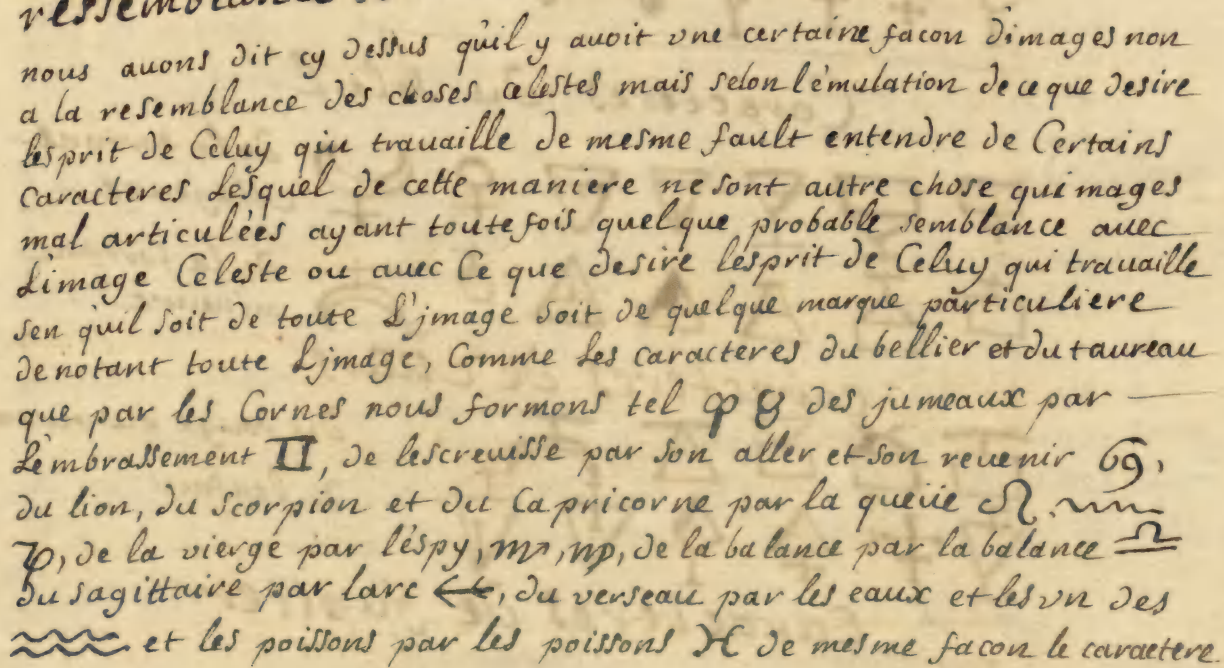 ressemblance
nous auons dit cy dessus qúil y auoit vne certaine facon dimages non
a la resemblance des choses celestes mais selon lémulation de ce que desire
lesprit de Celuy qui trauaille de mesme fault entendre de Certains
caracteres Lésquel de cette maniere ne sont autre chose quimages
mal articulées ayant toutefois quelque probable semblance auec
L'image Celeste ou auec Ce que desire lésprit de Celuy qui trauaille
sen qúil soit de toute L'jmage soit de quelque marque particuliere
denotant toute Ljmage, Comme Les caracteres du bellier et du taureau
que par les Cornes nous formons tel ♈ ♉ des jumeaux par —
Lémbrassement ♊, de lescreuisse par son aller et son reuenir ♋,
du lion, du scorpion et du Capricorne par la queüe ♌
♑, de la vierge par léspy, ♏, ♍, de la balance par la balance ♎
du sagittaire par larc ←, du verseau par les eaux et les vn des
♒ et les poissons par les poissons ♓ de mesme facon le caractere